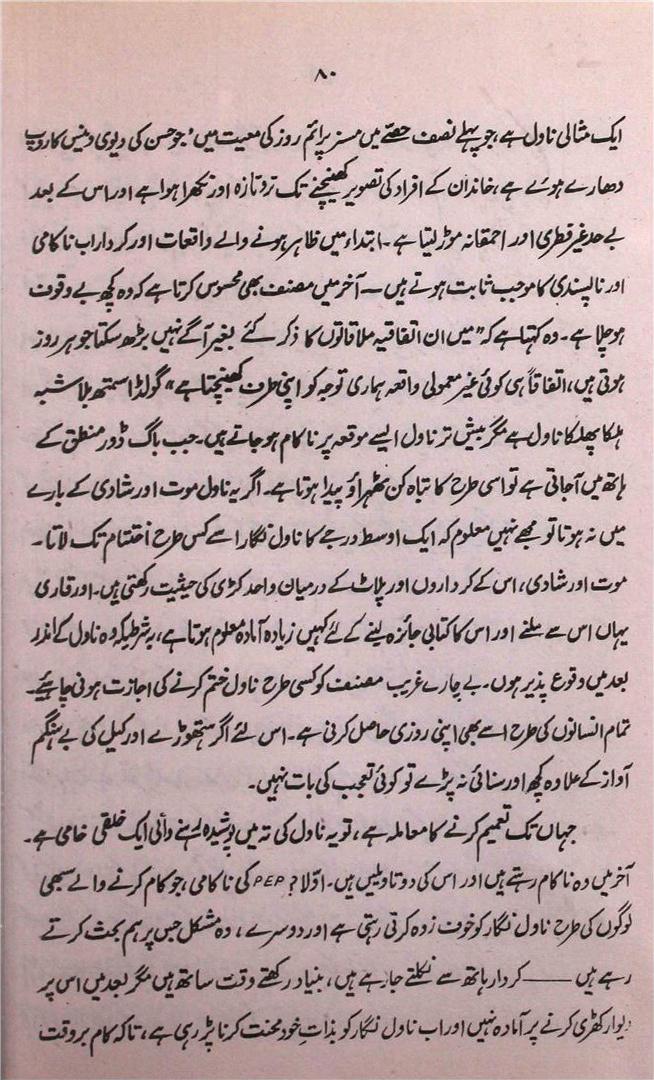 ۸۰
ایک مثالی ناول ہے، جو پہلے نصف حصّے میں مسز پرائم روز کی معیت میں، جو حسن کی دیوی وینس کا روپ
دھارے ہوئے ہے، خاندان کے افراد کی تصویر کھینچنے تک تروتازہ اور نکھرا ہوا ہے اور اس کے بعد
بے حد غیر فطری اور احمقانہ موڑ لیتا ہے۔ ابتداء میں ظاہر ہونے والے واقعات اور کردار اب ناکامی
اور ناپسندی کا موجب ثابت ہوتے ہیں — آخر میں مصنف بھی محسوس کرتا ہے کہ وہ کچھ بے وقوف
ہو چلا ہے۔ وہ کہتا ہے کہ ”میں ان اتفاقیہ ملاقاتوں کا ذکر کئے بغیر آگے نہیں بڑھ سکتا جو ہر روز
ہوتی ہیں، اتفاقاً ہی کوئی غیر معمولی واقعہ ہماری توجہ کو اپنی طرف کھینچتا ہے“ گولڈ اسمتھ بلا شبہ
ہلکا پھلکا ناول ہے مگر بیش تر ناول ایسے موقعہ پر ناکام ہو جاتے ہیں۔ جب باگ ڈور منطق کے
ہاتھ میں آ جاتی ہے تو اسی طرح کا تباہ کن ٹھہراؤ پیدا ہوتا ہے۔ اگر یہ ناول موت اور شادی کے بارے
میں نہ ہوتا تو مجھے نہیں معلوم کہ ایک اوسط درجے کا ناول نگار اسے کس طرح اختتام تک لاتا۔
موت اور شادی، اس کے کرداروں اور پلاٹ کے درمیان واحد کڑی کی حیثیت رکھتی ہیں۔ اور قاری
یہاں اس سے ملنے اور اس کا کتابی جائزہ لینے کے لئے کہیں زیادہ آمادہ معلوم ہوتا ہے، بہ شرطیکہ وہ ناول کے اندر
بعد میں وقوع پذیر ہوں۔ بے چارے غریب مصنف کو کسی طرح ناول ختم کرنے کی اجازت ہونی چاہیئے۔
تمام انسانوں کی طرح اسے بھی اپنی روزی حاصل کرنی ہے۔ اس لئے اگر ہتھوڑے اور کیل کی بے ہنگم
آواز کے علاوہ کچھ اور سنائی نہ پڑے تو کوئی تعجب کی بات نہیں۔
جہاں تک تعمیم کرنے کا معاملہ ہے، تو یہ ناول کی تہ میں پوشیدہ رہنے والی ایک خلقی خامی ہے۔
آخر میں وہ ناکام رہتے ہیں اور اس کی دو تاویلیں ہیں۔ اوّلاً PEP؟ کی ناکامی، جو کام کرنے والے سبھی
لوگوں کی طرح ناول نگار کو خوف زدہ کرتی رہتی ہے اور دوسرے، وہ مشکل جس پر ہم بحث کرتے
رہے ہیں —— کردار ہاتھ سے نکلتے جا رہے ہیں، بنیاد رکھتے وقت ساتھ ہیں مگر بعد میں اس پر
دیوار کھڑی کرنے پر آمادہ نہیں اور اب ناول نگار کو بذاتِ خود محنت کرنا پڑ رہی ہے، تاکہ کام بر وقت